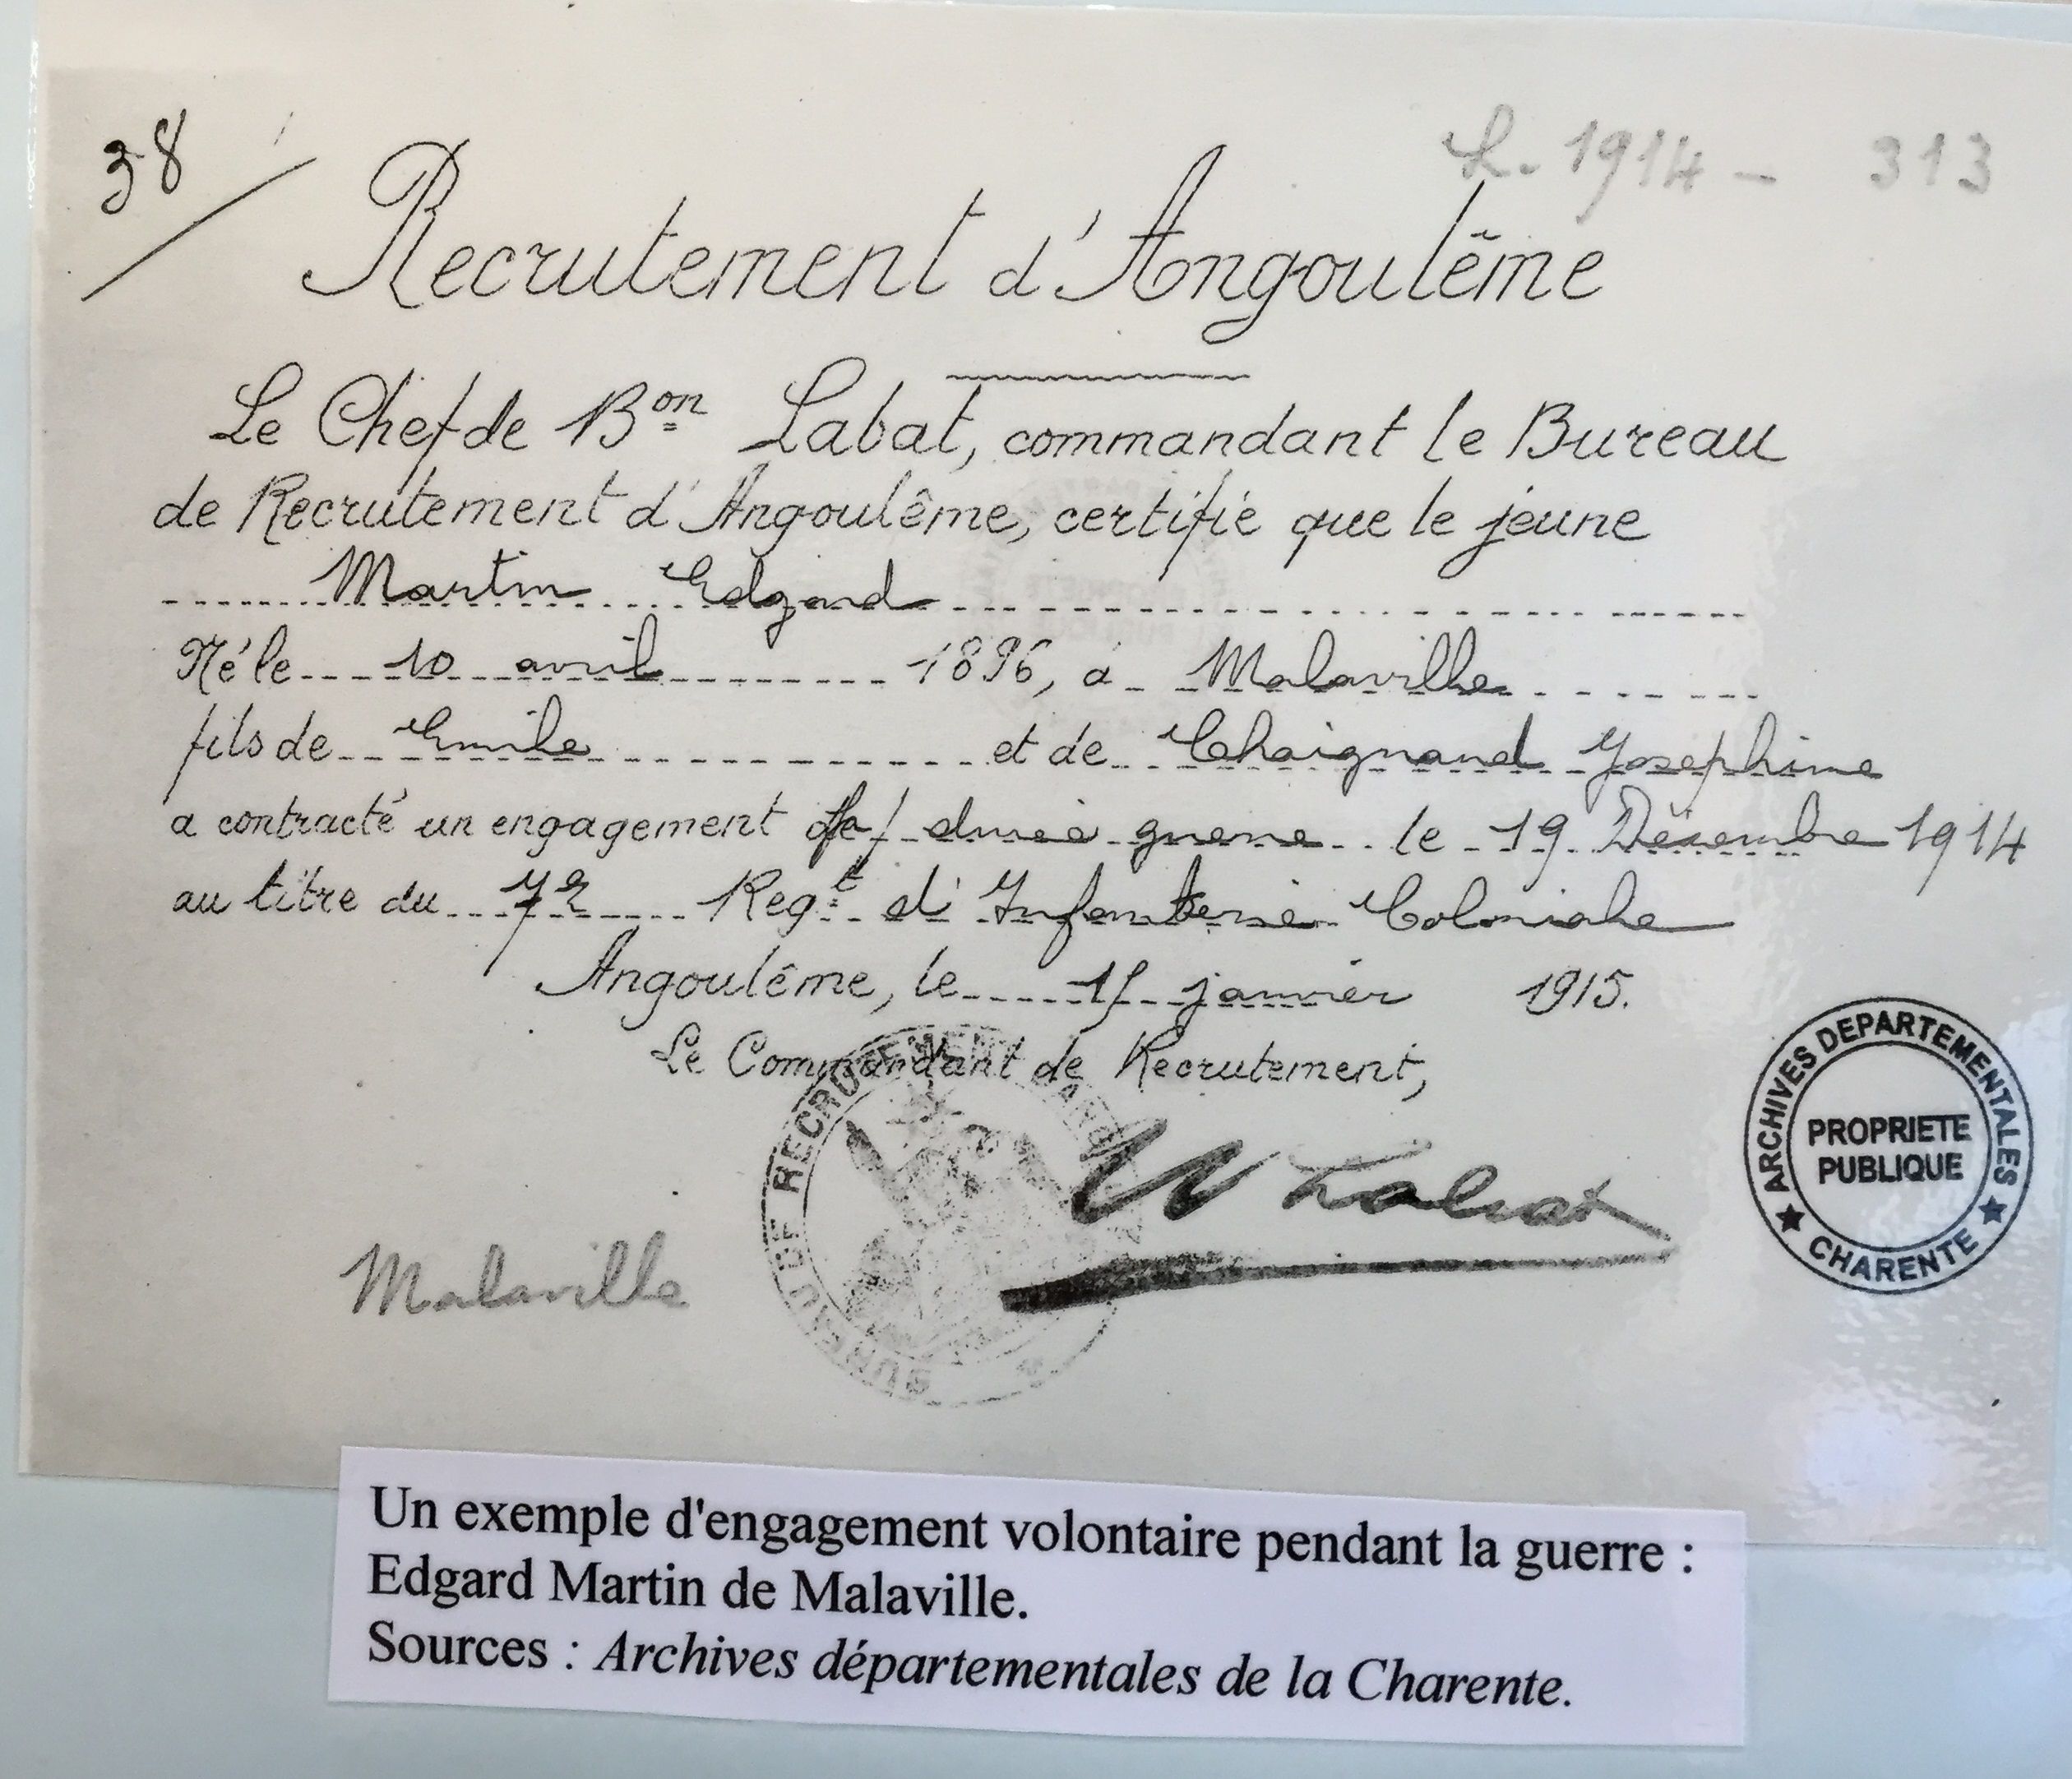 38
L. 1914 - 313
Recrutement d'Angoulême
Le Chef de Bon Labat, commandant le Bureau
de Recrutement d'Angoulême, certifie que le jeune
Martin Edgard
Né le 10 avril 1896, à Malaville
fils de Emile et de Chaignaud Josephine
a contracté un engagement durée guerre le 19 Décembre 1914
au titre du 7e Regt d'Infanterie Coloniale
Angoulême, le 15 janvier 1915.
Le Commandant de Recrutement,
BUREAU DE RECRUTEMENT
Labat
Malaville
ARCHIVES DEPARTEMENTALES
PROPRIETE
PUBLIQUE
CHARENTE
Un exemple d'engagement volontaire pendant la guerre :
Edgard Martin de Malaville.
Sources : Archives départementales de la Charente.